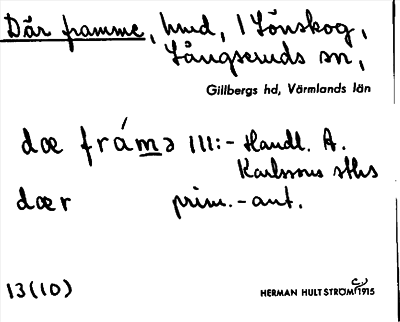 Där framme, hmd, i Lönskog,
Långseruds sn,
Gillbergs hd, Värmlands län
dœ frámə III:- Handl. A.
Karlssons sths
dœr prim.-ant.
13(10)
HERMAN HULTSTRÖM 1915